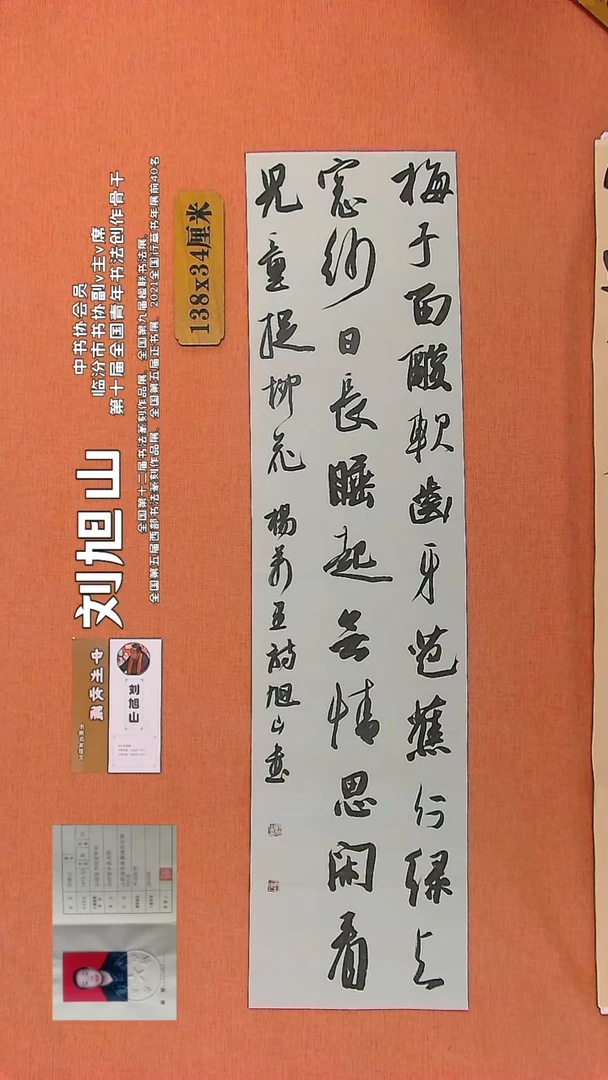 梅子留酸軟齒牙芭蕉分緑上
窓紗日長睡起無情思閑看
兒童捉柳花 楊萬里詩旭山書
138x34厘米
刘旭山
中书协会员
临汾市书协副v主v席
第十届全国青年书法创作骨干
全国第十二届书法篆刻作品展、全国第九届楹联书法展、
全国第五届西部书法篆刻作品展、全国第五届正书展、2021全国行草书年展前40名
刘旭山